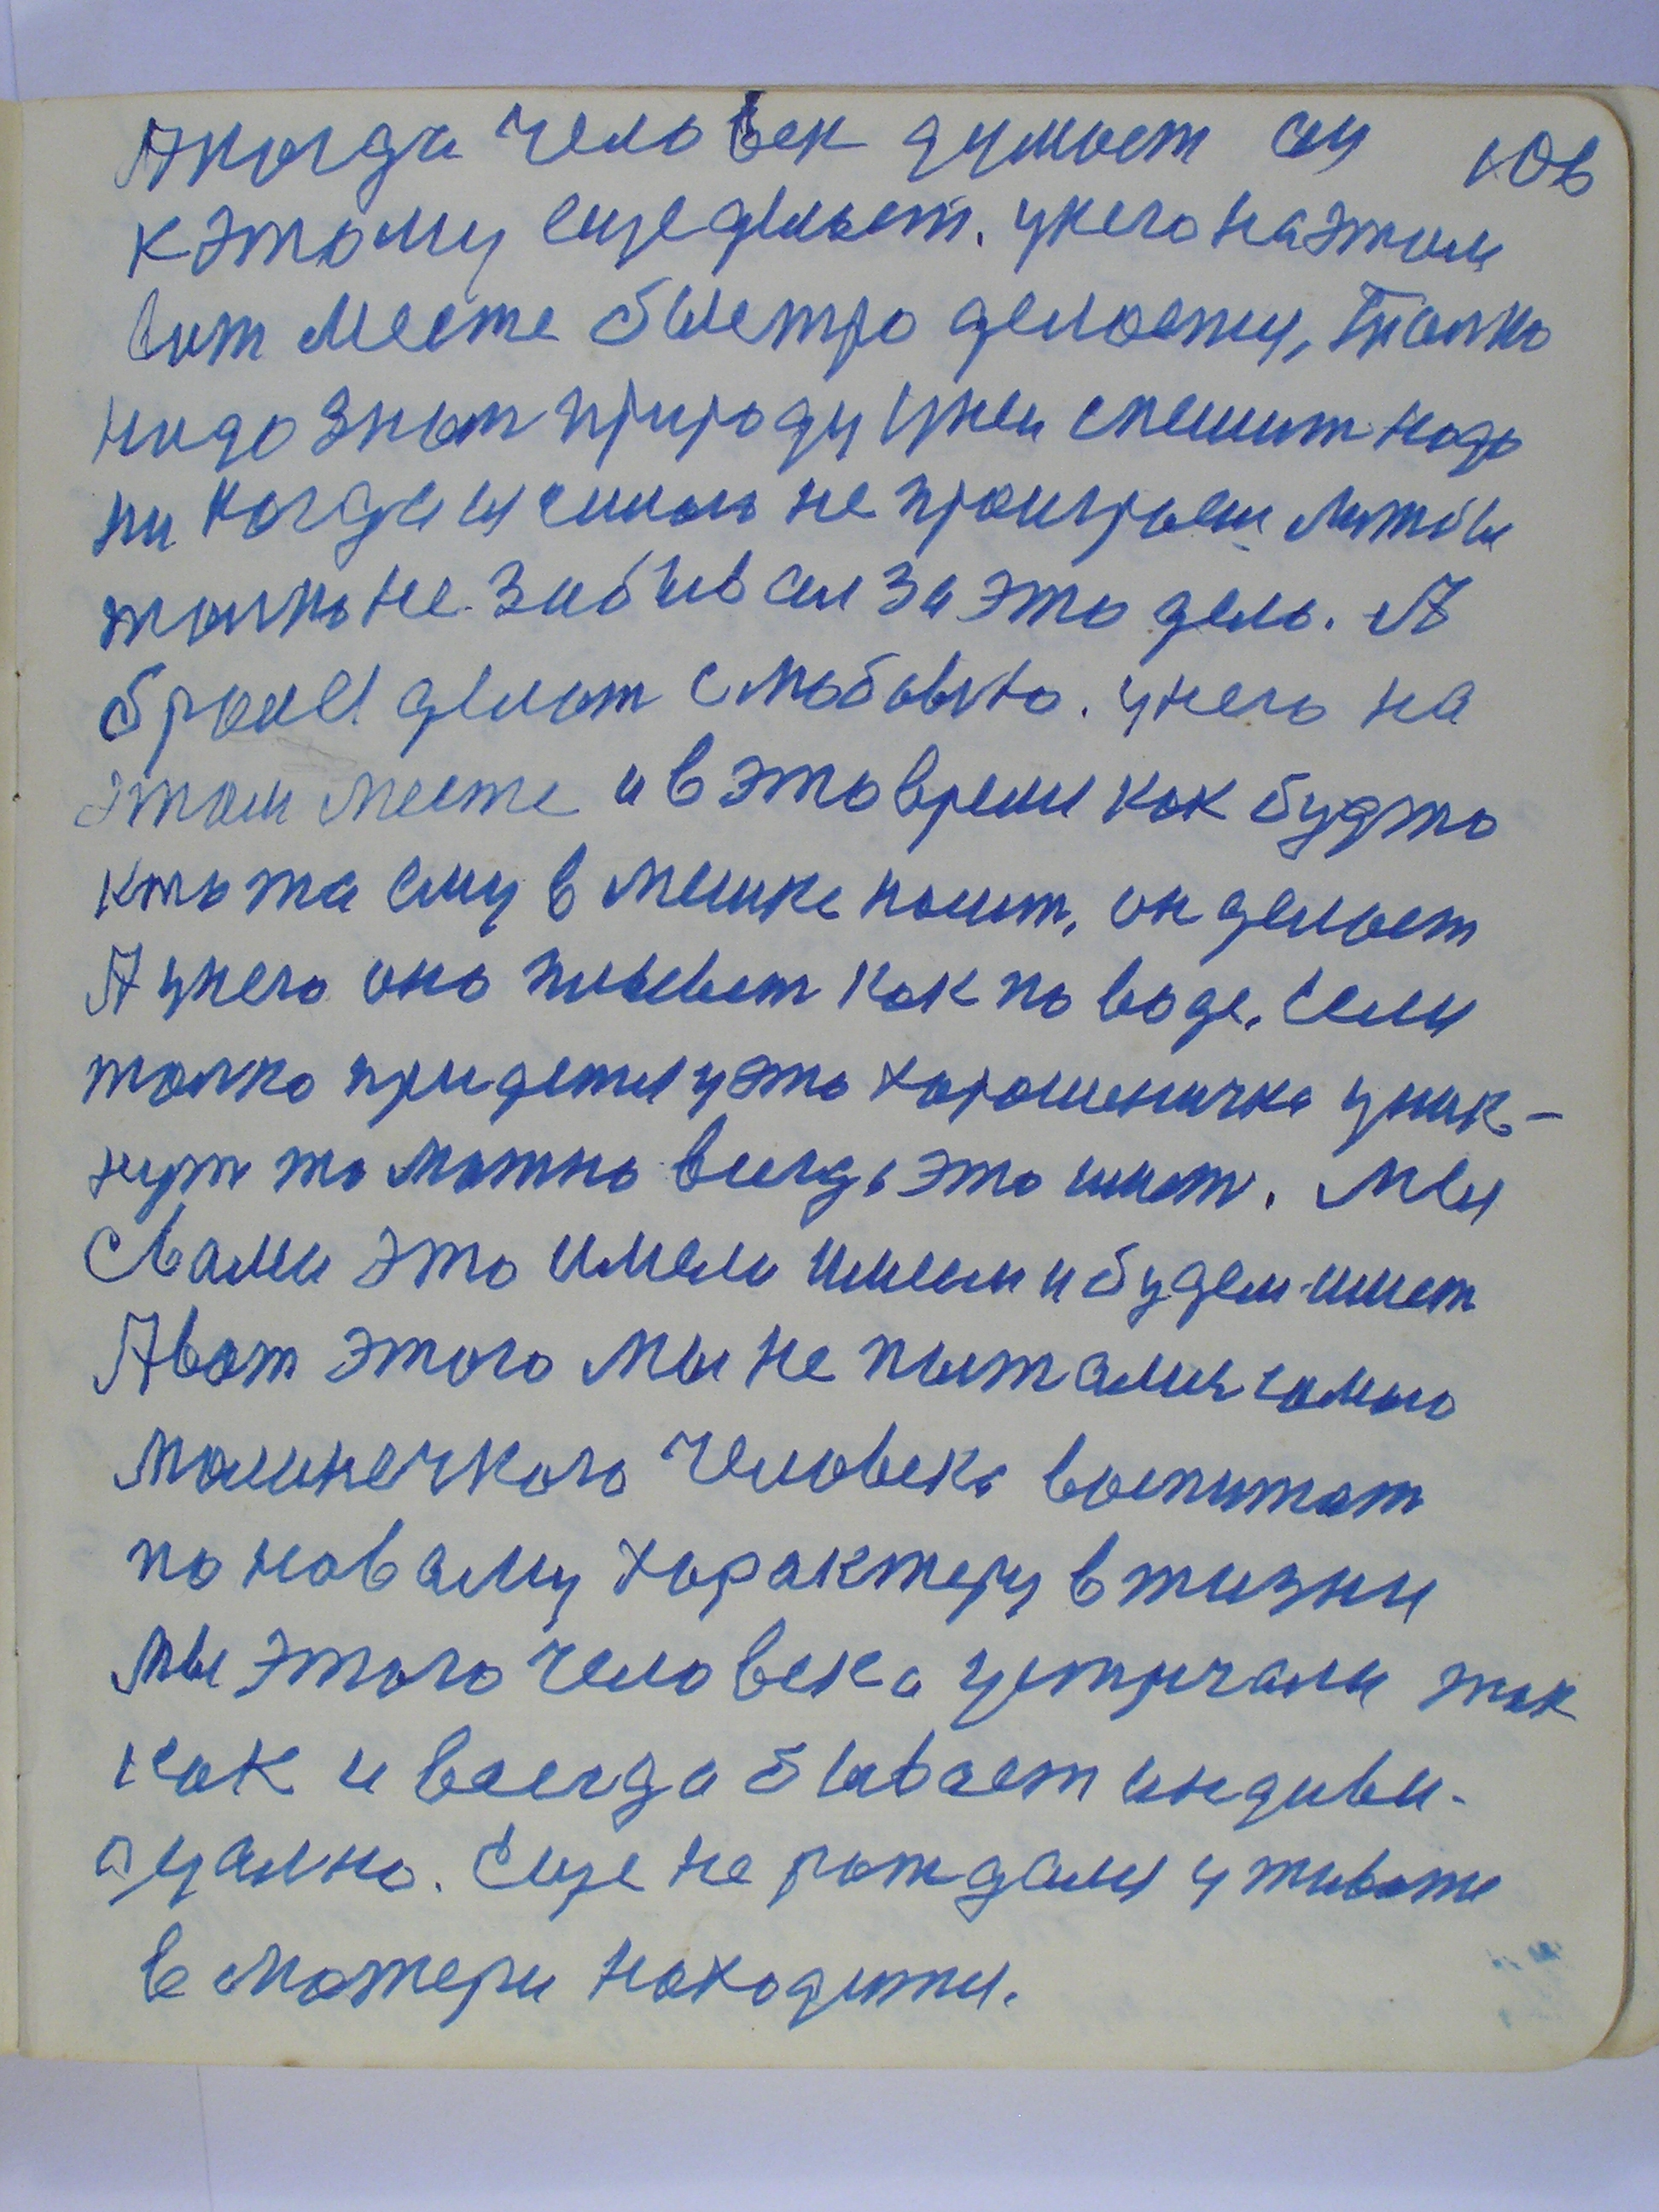 А когда человек думает ау
к этому еще делает. у него на этом
вот месте быстро делается, только
надо знат природу у ней спешит надо
ни когда и сило не проиграеш лиш бы
толко не забивал за это дело. А
браесия делат с любовию. у него на
этом месте и в это время как будто
кто та ему в мешке ношит. он делает
А у него оно плывет как по воде. Если
толко придется у это хорошеничка уник-
нут то можно всегда это имет. Мы
с вами это имели имеем и будем имет
А вот этого мы не пытались самого
малинечкого человека воспитат
по новаму характеру в жизни
мы этого человека устречали так
как и всегда бывает индиви-
дуално. Еще не рождался у животе
в матери находится.